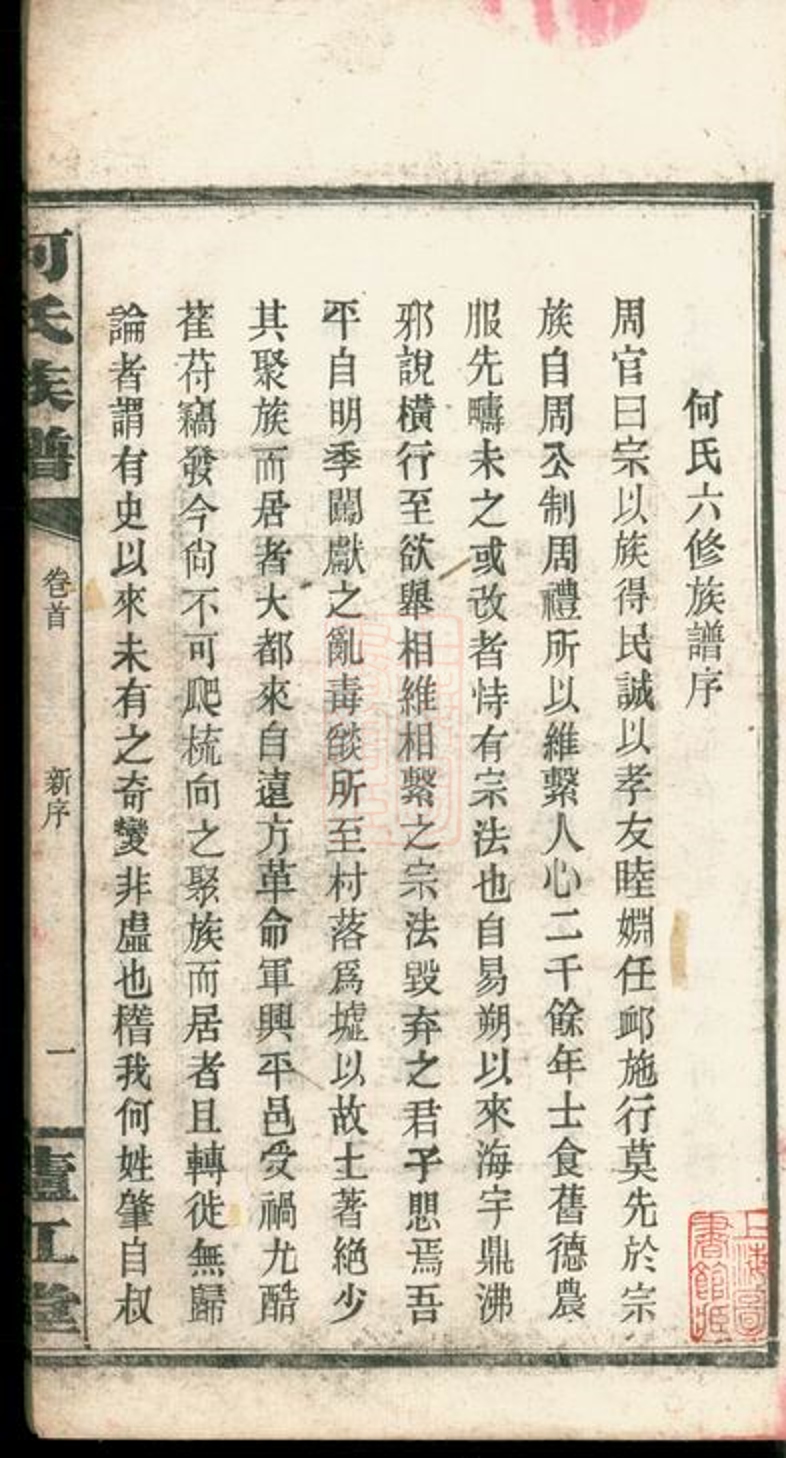 何氏六修族譜序
周官曰宗以族得民誠以孝友睦婣任卹施行莫先於宗
族自周公制周禮所以維繫人心二千餘年士食舊德農
服先疇未之或改者恃有宗法也自易朔以來海宇鼎沸
邪說橫行至欲舉相維相繫之宗法毀弃之君子愳焉吾
平自明季闖獻之亂毒燄所至村落爲墟以故土著絕少
其聚族而居者大都來自遠方革命軍興平邑受禍尤酷
萑苻竊發今尙不可爬梳向之聚族而居者且轉徙無歸
論者謂有史以來未有之奇變非虛也稽我何姓肇自叔
何氏族譜
卷首
新序
一
廬江堂
上海圖書館藏